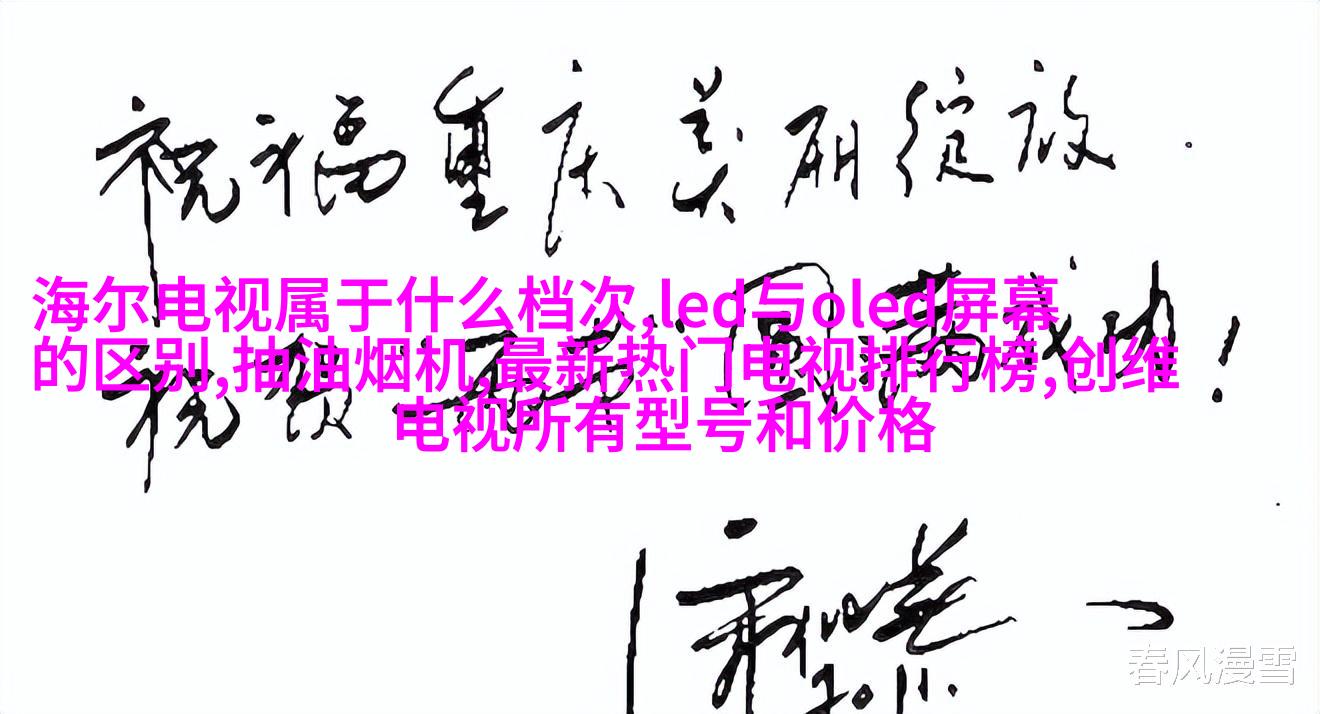 祝福重庆美丽绽放.
海尔电视属于什么档次,led与oled屏幕
的区别,抽油烟机,最新热门电视排行榜,创维
电视所有型号和价格
祝贺 圆满成功!
2011.
春风漫雪